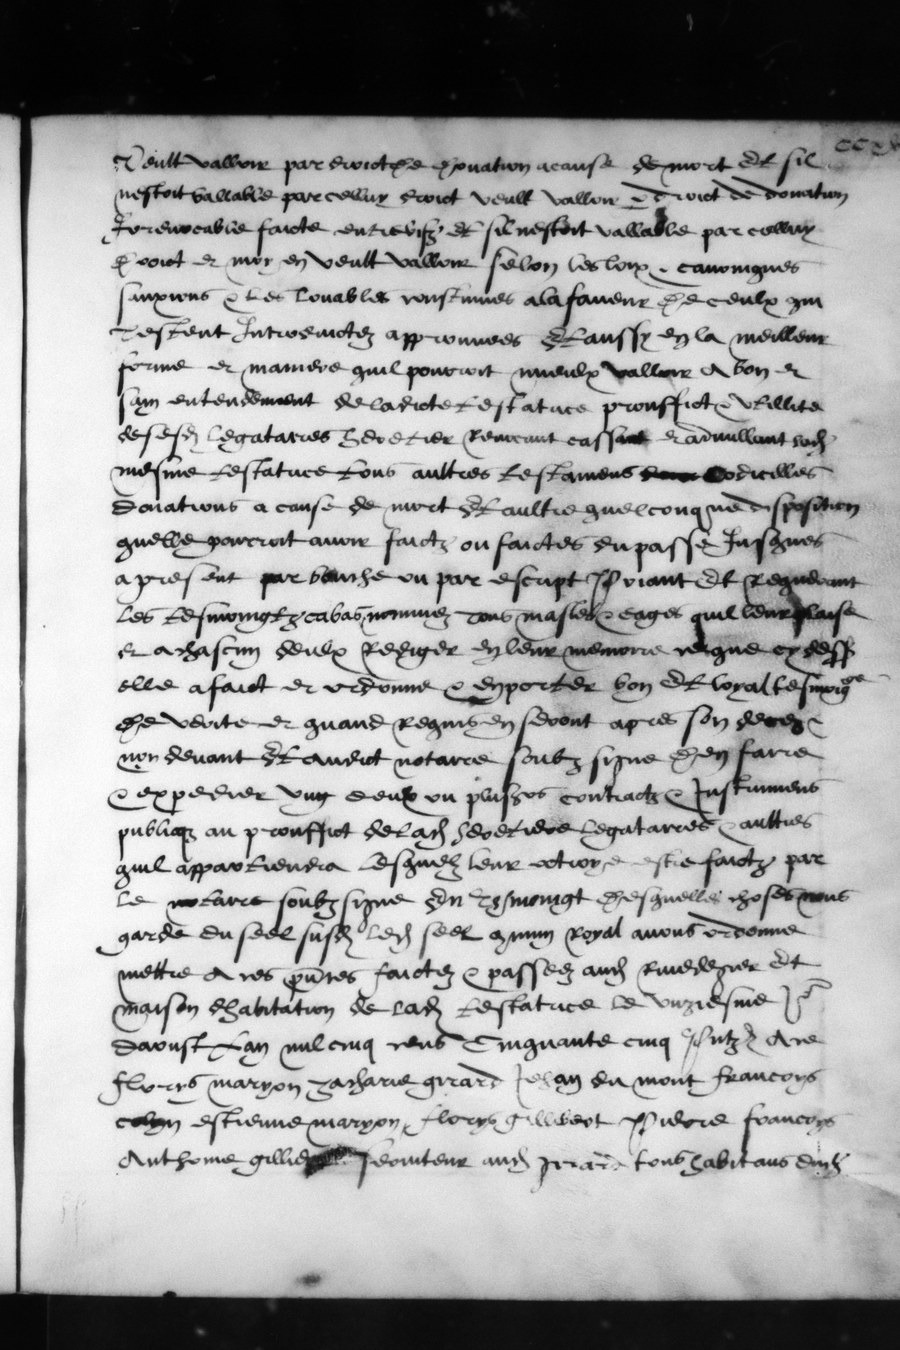 veult valloir par droict de donation a cause de mort Et sil
nestoit vallable par celluy droict veult valloir & droict de donation
Irrevocable faicte entre vifz Et sil nestoit vallable par celluy
droict et moyen veult valloir selon les loix & canoniques
sanxions & les louables constumes a la faveur de ceulx qui
testent Introduictez approuvees Et aussy en la meilleur
forme et maniere quil pourroit mieulx valloir A bon et
sain entendement de ladicte testatrice prouffict & utillite
de sesd legataires heretier Revocant cassant et adnullant lad
mesme testatrice tous aultres testamens Codicilles
donations a cause de mort Et aultre quelconque disposition
quelle pourroit avoir faictz ou faictes du passe Jusques
a present par bouche ou par escript Priant Et Requerant
les tesmoingtz cabas nommez tous masles & eages quil leur plaise
et a chascun deulx Rediger en leur memoire ce que cy dess
elle a faict et ordonne & en porter bon Et loyal tesmoigge
de verite et quand Requis en seront apres son deces &
non devant Et audict notaire soubz signe den faire
& expedier ung deulx ou plusrs contractz & Instrumens
publicqz au prouffict de lad heretiere legataires & aultres
quil appartiendra lesquelz leur octroye estre faictz par
le notaire soubz signe En tesmoingt desquelles choses nous
garde du seel susd led seel commun Royal avons ordonne
mettre A ces pntes faictez & passeez aud Et
maison dhabitation de lad testatrice le unziesme Jr
daoust Lan mil cinq cens Cinquante cinq Pntz Ace
florys maryon zacharie girard Jehan du mont francoys
colyn estienne maryon florys gillibert Pierre francoys
Anthoine gillier serviteur aud girard tous habitans dud